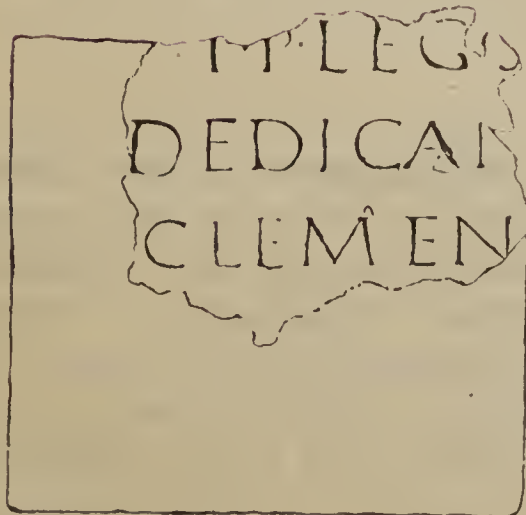 M·LEG·S
DEDICAN
CLEMEN